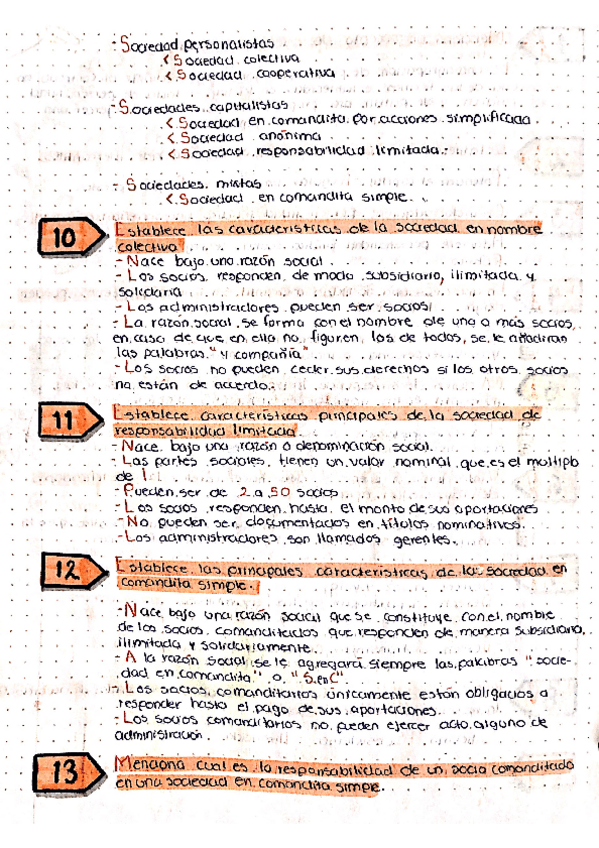 - Sociedad personalistas
< Sociedad colectiva
< Sociedad cooperativa
- Sociedades capitalistas
< Sociedad en comandita por acciones simplificada
< Sociedad anónima
< Sociedad responsabilidad limitada.
- Sociedades mixtas
< Sociedad en comandita simple.
10 Establece las características de la sociedad en nombre
colectivo
- Nace bajo una razón social
- Los socios responden de modo subsidiario, ilimitada y
solidaria
- Los administradores pueden ser socios
- La razón social se forma con el nombre de uno o más socios,
en caso de que en ella no figuren los de todos, se le añadiran
las palabras "y compañia"
- Los socios no pueden ceder sus derechos si los otros socios
no están de acuerdo.
11 Establece características principales de la sociedad de
responsabilidad limitada
- Nace bajo una razón o denominación social.
- Las partes sociales tienen un valor nominal que es el multiplo
de 1
- Pueden ser de 2 a 50 socios
- Los socios responden hasta el monto de sus aportaciones
- No pueden ser documentados en títulos nominativos.
- Los administradores son llamados gerentes.
12 Establece las principales características de la sociedad en
comandita simple.
- Nace bajo una razón social que se constituye con el nombre
de los socios comanditados que responden de manera subsidiaria,
ilimitada y solidariamente
- A la razón social se le agregará siempre las palabras "socie-
dad en comandita" o "S. en C"
- Los socios comanditarios únicamente están obligados a
responder hasta el pago de sus aportaciones.
- Los socios comanditarios no pueden ejercer acto alguno de
administración
13 Menciona cual es la responsabilidad de un socio comanditado
en una sociedad en comandita simple.